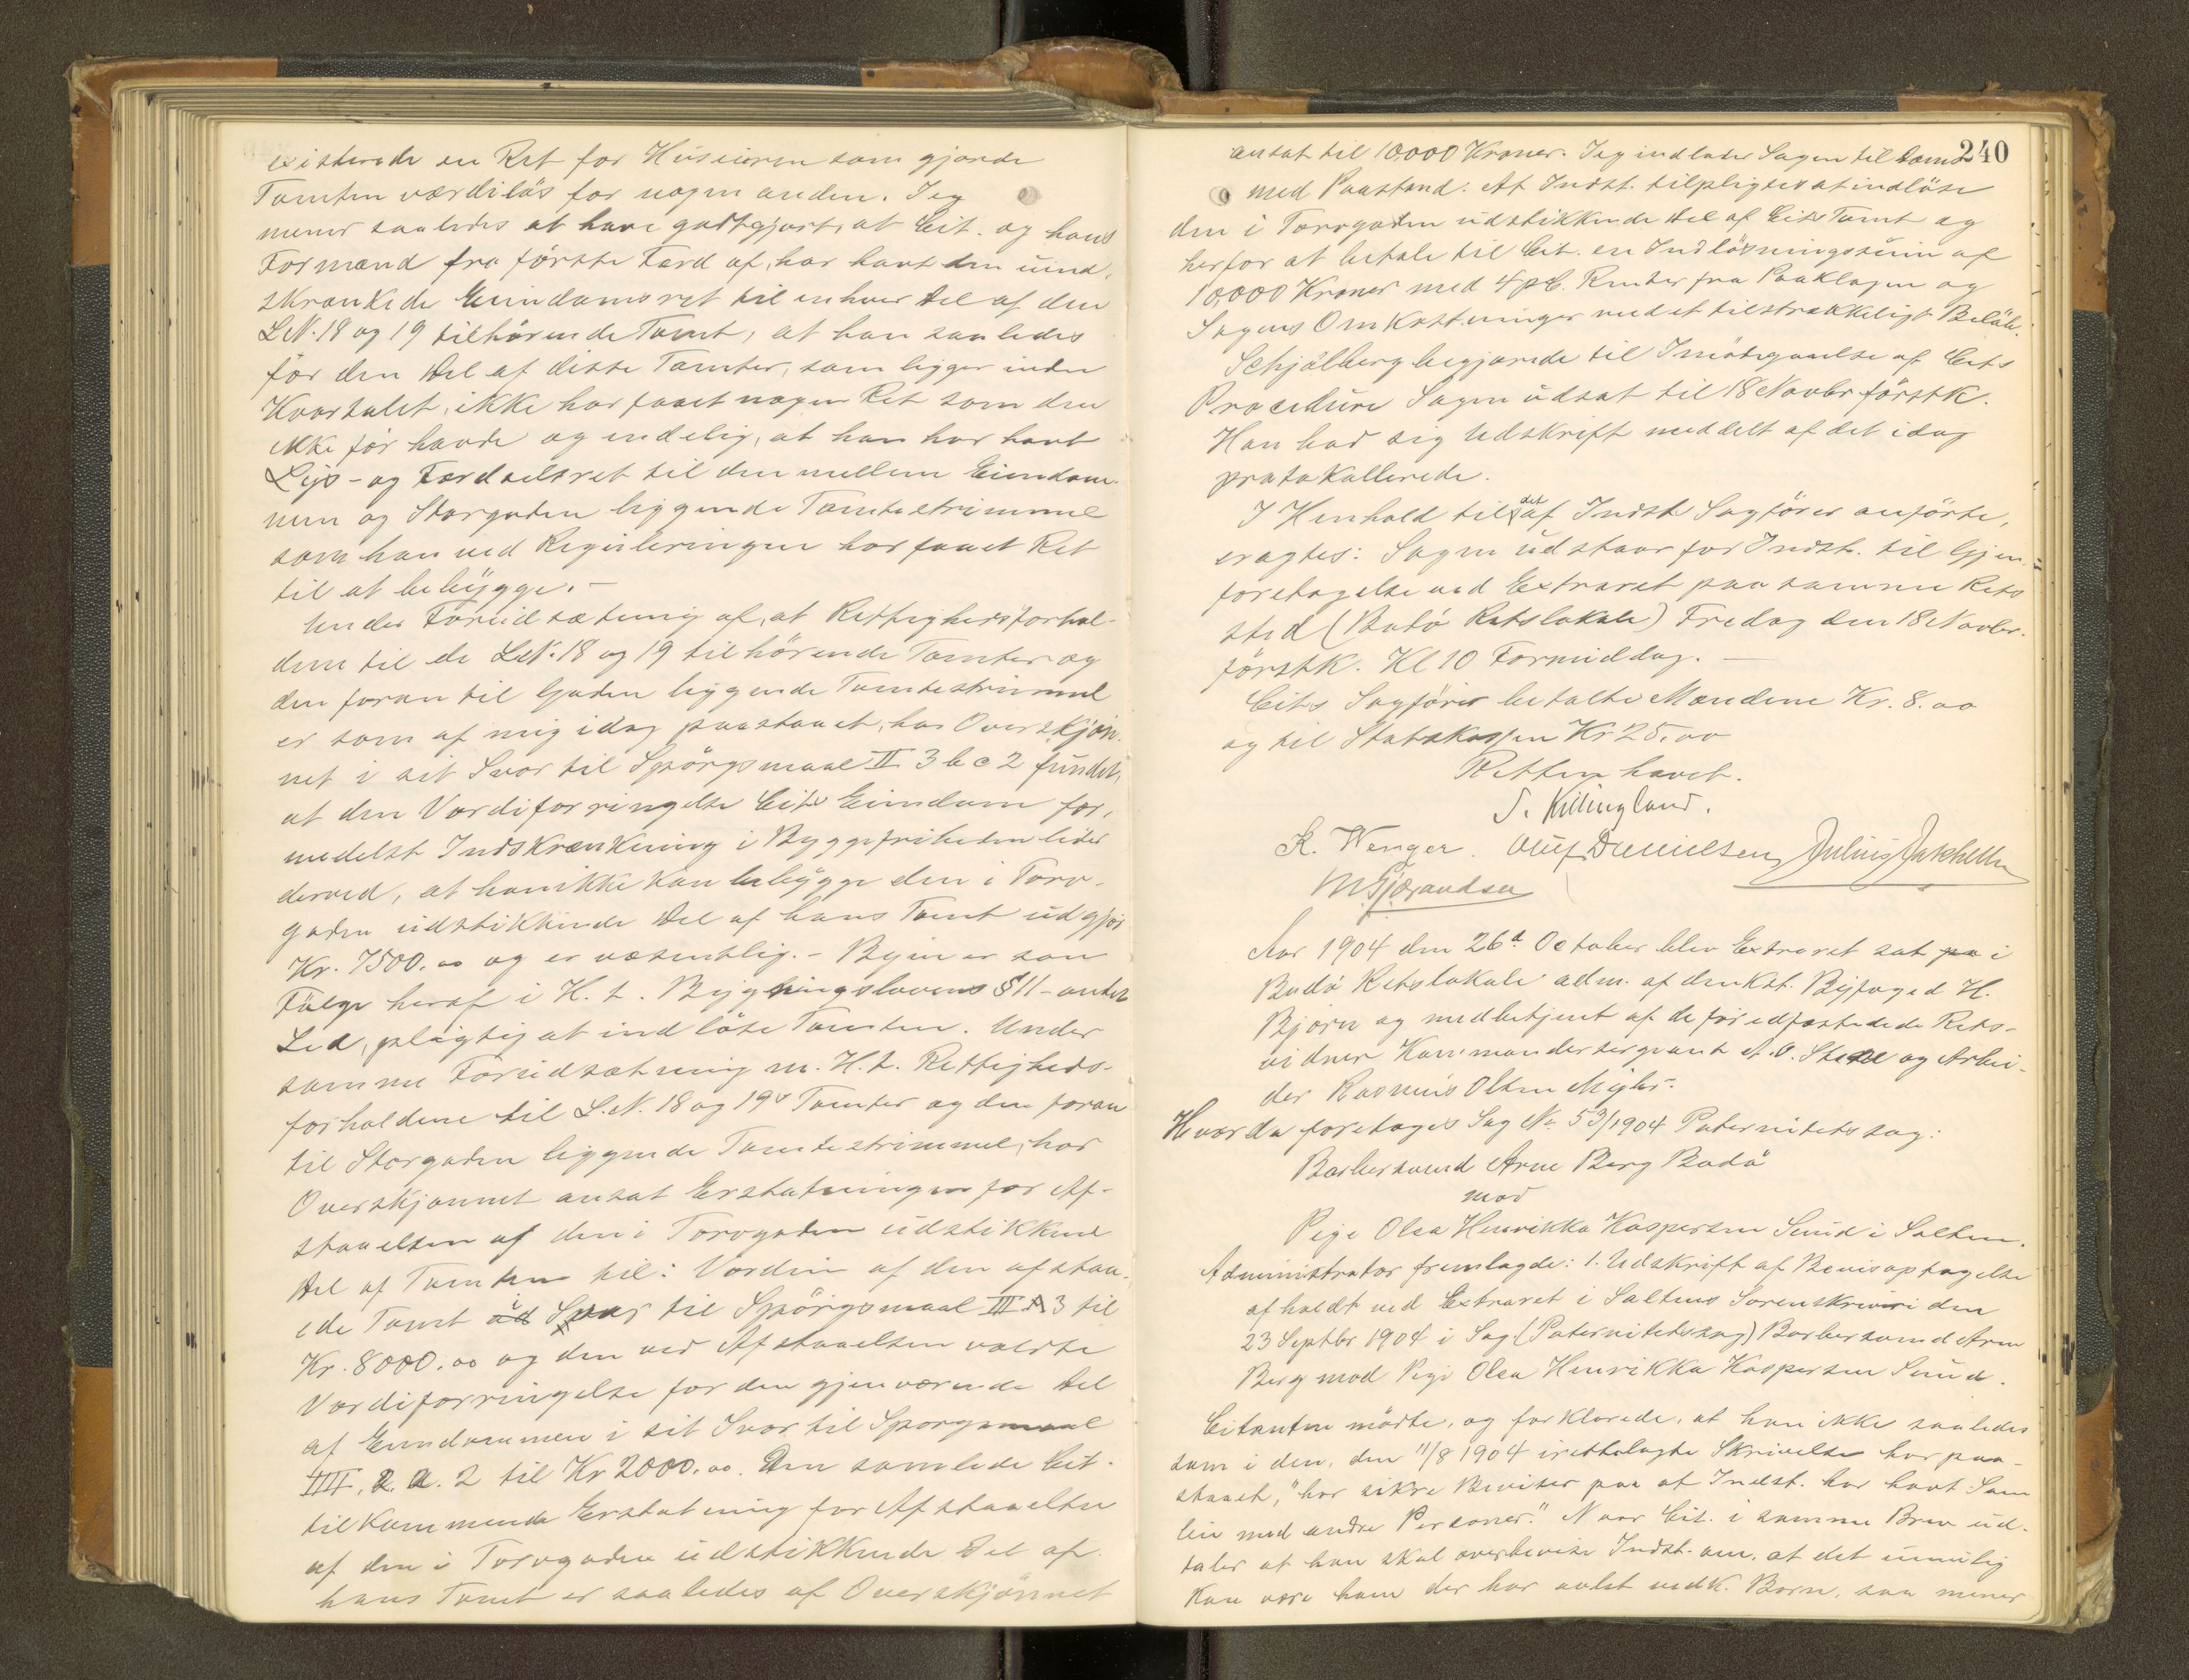 existerede en Ret for Huseieren som gjorde
Tomten værdiløs for nogen anden. Jeg
mener saaledes at have godtgjort, at Cit. og hans
Formænd fra første Færd af, har havt den uind-
skrænkede Eiendomsret til enhver Del af den
L.N. 18 og 19 tilhørende Tomt, at han saaledes
for den Del af disse Tomter, som ligger inden
Kvartalet, ikke har faaet nogen Ret som den
ikke før havde og endelig, at han har havt
Lys- og Færdselsret til den mellem Eiendom-
men og Storgaden liggende Tomtestrimmel
som han ved Reguleringen har faaet Ret
til at bebygge. -
Under Forudsætning af, at Rettighedsforhol-
dene til de L.N. 18 og 19 tilhørende Tomter og
den foran til Gaden liggende Tomtestrimmel
er som af mig idag paastaaet, har Overskjøn-
net i sit Svar til Spørgsmaal II 3 b c 2 fundet,
at den Værdiforringelse Cits Eiendom for-
medelst Indskrænkning i Byggefriheden lider
derved, at han ikke kan bebygge den i Torv-
gaden udstikkende Del af hans Tomt udgjør
Kr. 7500.00 og er væsentlig. - Byen er som
Følge heraf i H. t. Bygningslovens § 11 - andet
Led, pligtig at indløse Tomten. Under
samme Forudsætning m. H. t. Rettigheds-
forholdene til L.N. 18 og 19s Tomter og den foran
til Storgaden liggende Tomtestrimmel, har
Overskjønnet ansat Erstatningen for Af-
staaelsen af den i Torvgaden udstikkende
Del af Tomten til: Værdien af den afstaa-
ede Tomt Svar til Spørgsmaal III A 3 til
Kr. 8000.00 og den ved Afstaaelsen voldte
Værdiforringelse for den gjenværende Del
af Eiendommen i sit Svar til Spørgsmaal
III, 2. 2 til Kr 2000.00. Den samlede Cit.
tilkommende Erstatning for Afstaaelse
af den i Torvgaden udstikkende Del af
hans Tomt er saaledes af Overskjønnet
240
ansat til 10,000 Kroner. Jeg indlader Sagen til Doms
med Paastand: At Indst. tilpligtes at indløse
den i Torvgaden udstikkende Del af Cits Tomt og
herfor at betale til Cit. en Indløsningssum af
10,000 Kroner med 4 pC. Renter fra Paaklagen og
Sagens Omkostninger med et tilstrækkeligt Beløb.
Schjølberg begjærede til Imødegaaelse af Cits
Procedure Sagen udsat til 18 Novbr førstk.
Han bad sig Udskrift meddelt af det idag
protokollerede.
I Henhold til det af Indst. Sagfører anførte,
eragtes: Sagen udstaar for Indst. til Gjen-
foretagelse ved Extraret paa samme Rets
sted (Bodø Retslokale) Fredag den 18 Novbr.
førstk. Kl 10 Formiddag. -
Cits Sagfører betalte Mændene Kr. 8.00
og til Statskassen Kr 25.00
Retten hævet.
S. Killingland.
K. Wenger. Oluf Danielsen Julius Jakhelln
M. Gjærandsen
Aar 1904 den 26d October blev Extraret sat i
Bodø Retslokale adm. af den kst. Byfoged H.
Bjørn og medbetjent af de foredfæstede Rets-
vidner Kommandersergeant A. O. Stene og Arbei-
der Rasmus Olsen Myhr.
Hvor da foretages Sag No 53/1904 Paternitetssag:
Barbersvend Arne Berg Bodø
mod
Pige Olea Henrikka Kaspersen Sund i Salten.
Administrator fremlagde: 1. Udskrift af Bevisoptagelse
afholdt ved Extraret i Saltens Sorenskriveri den
23 Septbr 1904 i Sag (Paternitetssag) Barbersvend Arne
Berg mod Pige Olea Henrikka Kaspersen Sund.
Citanten mødte, og forklarede, at han ikke saaledes
som i den, den 11/8 1904 irettelagte Skrivelse har paa-
staaet, "har sikre Beviser paa at Indst. har havt Sam
leie med andre Personer." Naar Cit. i samme Brev ud-
taler at han skal overbevise Indst. om, at det umulig
kan være ham der har avlet vedk. Barn, saa mener